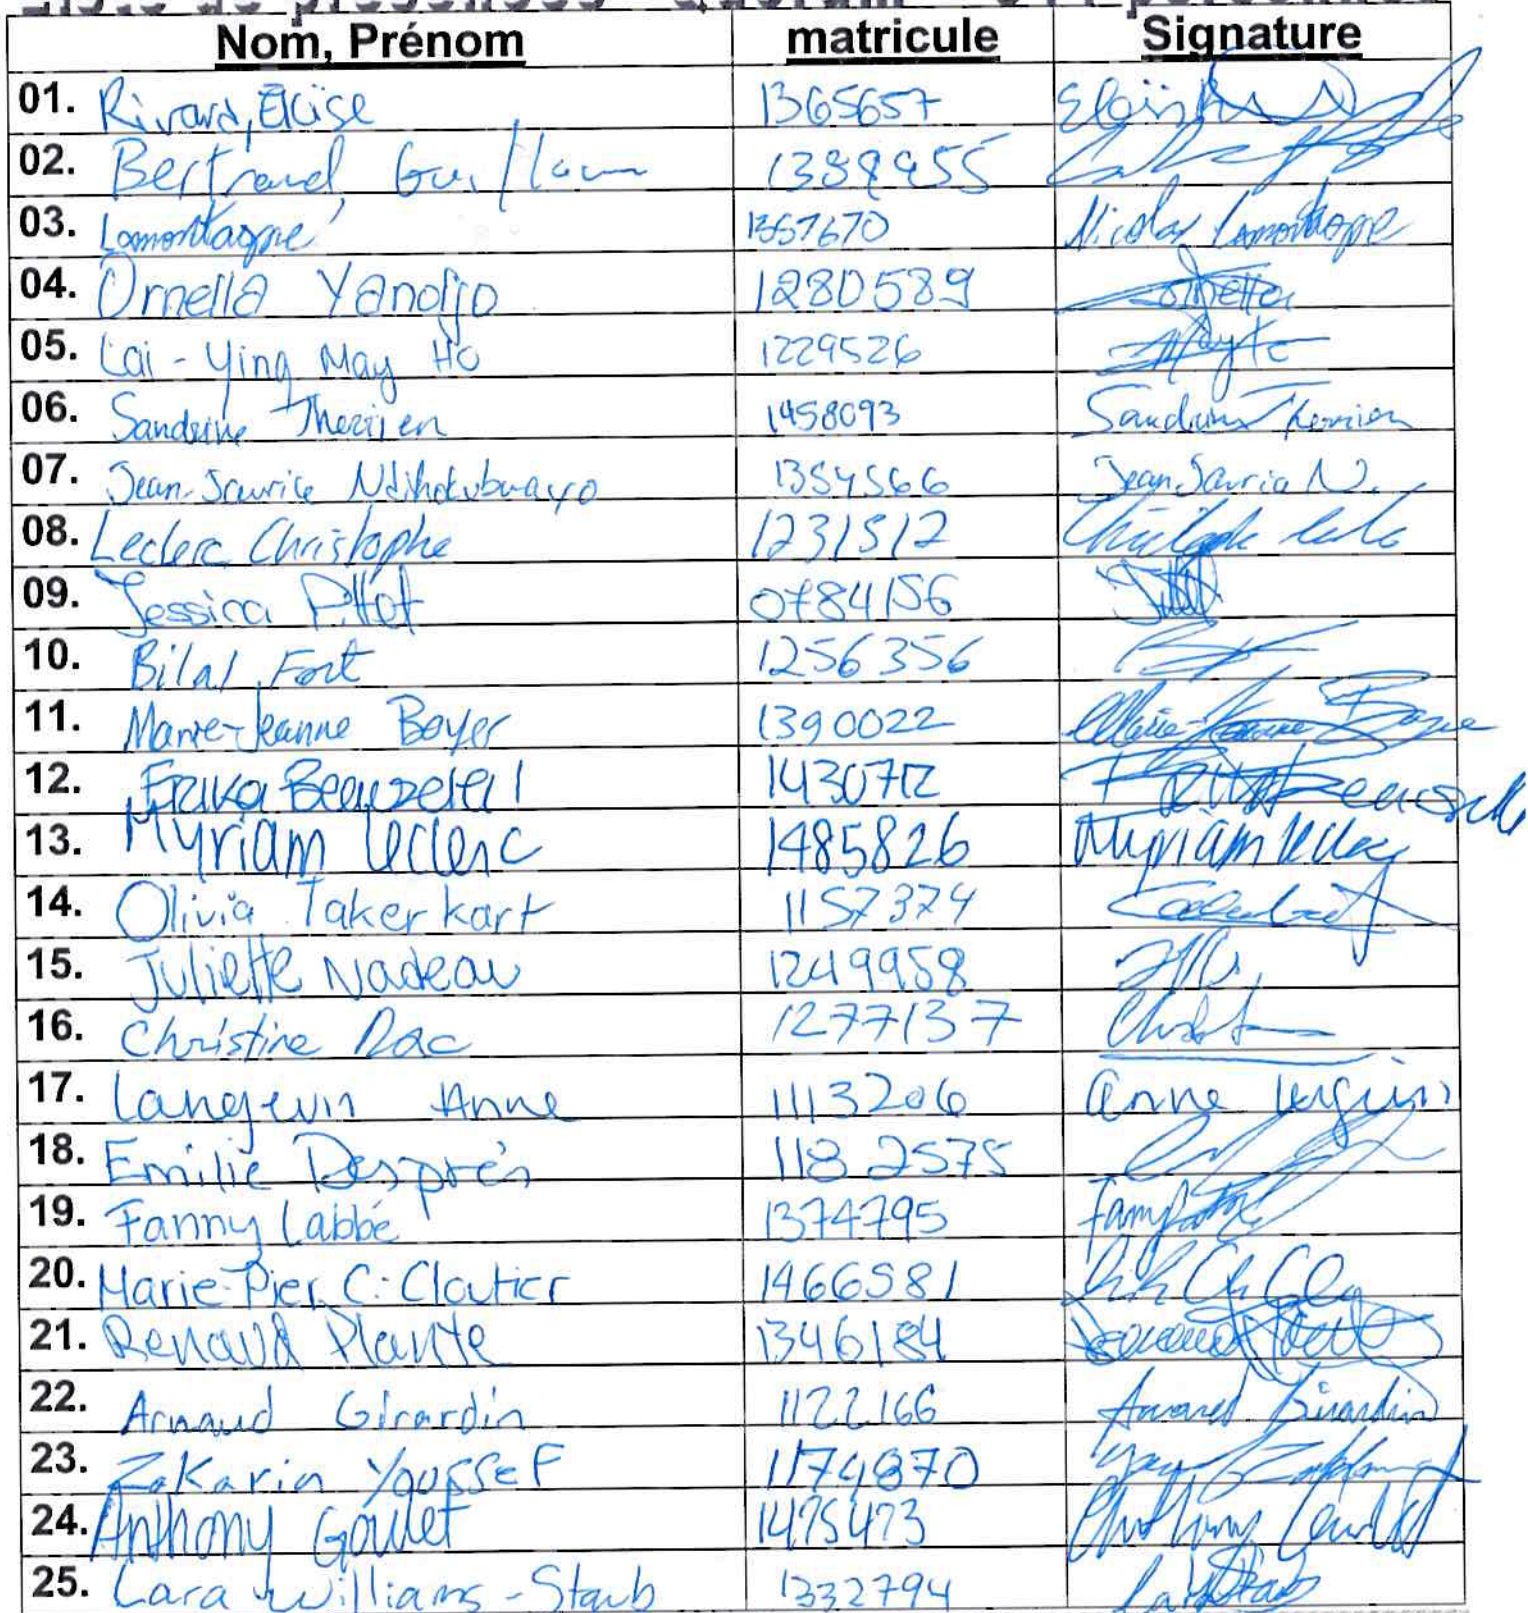 Liste de présences - Quorum
Nom, Prénom matricule Signature
01. Rivard, Éloïse 1365657
02. Bertrand, 1389955
03. Lamontagne 1357670 Nicolas Lamontagne
04. Ornella Yandjo 1280589 Ornella
05. Lai-Ying May Ho 1229526
06. Sandrine Therrien 1458093 Sandrine Therrien
07. Jean-Sauvice Ndihokubwayo 1354566 Jean Sauvice N.
08. Leclerc Christophe 1231512 Christophe
09. Jessica Pittot 0784156
10. Bilal Fort 1256356
11. Marie-Jeanne Boyer 1390022 Marie-Jeanne Boyer
12. Erika 1430712
13. Myriam Leclerc 1485826 Myriam Leclerc
14. Olivia Takerkart 1157374
15. Juliette Nadeau 1249958
16. Christine Dac 1277137
17. Langevin Anne 1113206 Anne
18. Emilie Després 1182575
19. Fanny Labbé 1374795 Fanny
20. Marie-Pier C. Cloutier 1466581
21. Renaud Plante 1346184 Renaud Plante
22. Arnaud Girardin 1122166 Arnaud Girardin
23. Zakaria Youssef 1174870
24. Anthony Goulet 1475473 Anthony Goulet
25. Lara Williams-Staub 1332794